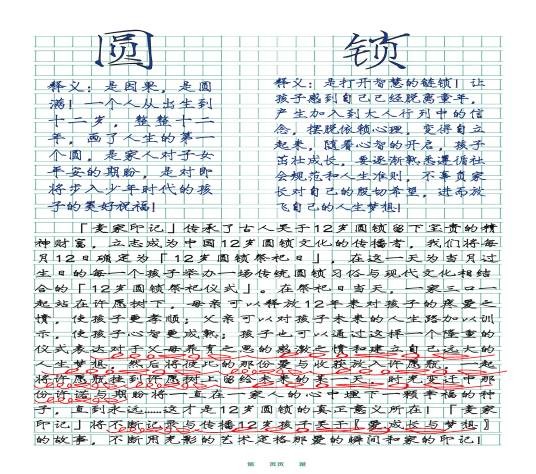 圆
释义：是因果，是圆
满！一个人从出生到
十二岁，整整十二
年，画了人生的第一
个圆，是家人对子女
平安的期盼，是对即
将步入少年时代的孩
子的美好祝福！
锁
释义：是打开智慧的链锁！让
孩子感到自己已经脱离童年，
产生加入到大人行列中的信
念，摆脱依赖心理，变得自立
起来，随着心智的开启，孩子
茁壮成长，要逐渐熟悉遵循社
会规范和人生准则，不辜负家
长对自己的殷切希望，进而放
飞自己的人生梦想！
「麦家印记」传承了古人关于12岁圆锁留下宝贵的精
神财富，立志成为中国12岁圆锁文化的传播者，我们将每
月12日确定为「12岁圆锁祭祀日」，在这一天为当月过
生日的每一个孩子举办一场传统圆锁习俗与现代文化相结
合的「12岁圆锁祭祀仪式」。在祭祀日当天，一家三口一
起站在许愿树下，母亲可以释放12年来对孩子的疼爱之
情，使孩子更孝顺；父亲可以对孩子未来的人生路加以训
示，使孩子心智更成熟；孩子也可以通过这样一个隆重的
仪式表达对于父母养育之恩的感激之情和建立自己远大的
人生梦想。然后将彼此的那份爱与收获放入许愿瓶，一起
将许愿瓶挂到许愿树上留给未来的某一天，时光变迁中那
份许诺与期盼将一直在一家人的心中埋下一颗幸福的种
子，直到永远……这才是12岁圆锁的真正意义所在！「麦家
印记」将不断记录与传播12岁圆锁关于『爱成长与梦想』
的故事，不断用光影的艺术定格那爱的瞬间和家的印记！